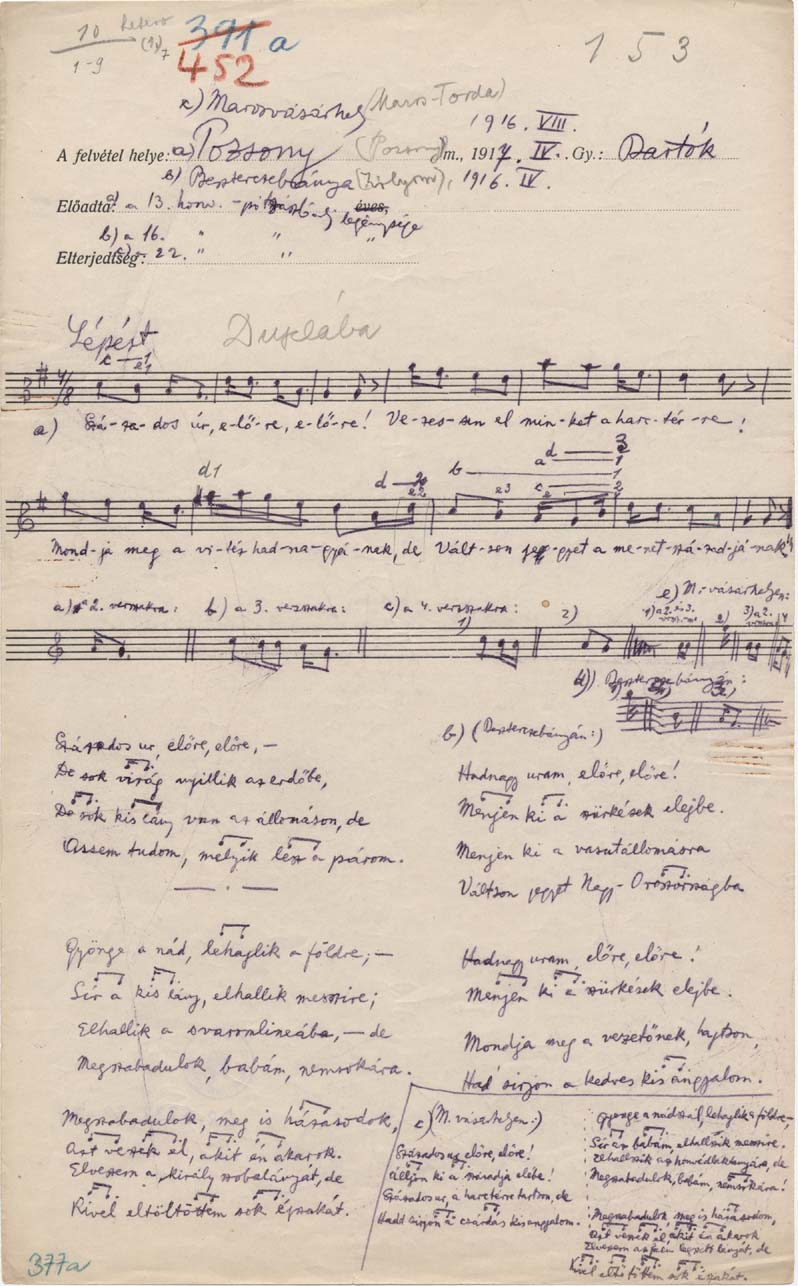 10
1-9
391 a
452
153
c) Marosvásárhely (Maros-Torda)
1916. VIII.
A felvétel helye: a) Pozsony (Pozsony) m., 1917. IV. Gy.: Bartók
b) Besztercebánya (Zólyom), 1916. IV.
Előadta: a) a 13. honv. - pótzászlóalj legénysége
éves,
b) a 16. " " "
Elterjedtség: c) a 22. " "
Lépést
Duklába
a) Szá-za-dos úr, e-lő-re, e-lő-re! Ve-zes-sen el min-ket a harc-tér-re!
d1
Mond-ja meg a vi-téz had-na-gyá-nak, de Vált-son je-gyet a me-net-szá-zad-já-nak
a) a 2. versszakra: b) a 3. versszakra: c) a 4. versszakra:
1) 2)
e) M.-vásárhelyen:
d) Besztercebányán:
Százados ur, előre, előre, —
De sok virág nyitlik az erdőbe,
De sok kis lány van az állomáson, de
Assem tudom, melyik lesz a párom.
Gyönge a nád, lehajlik a földre; —
Sír a kis lány, elhallik messzire;
Elhallik a svarmlineába, — de
Megszabadulok, babám, nemsokára.
Megszabadulok, meg is házasodok,
Azt veszek el, akit én akarok.
Elveszem a király szobalányát, de
Kivel eltöltöttem sok éjszakát.
b) (Besztercebányán:)
Hadnagy uram, előre, előre!
Menjen ki a szürkések elejbe.
Menjen ki a vasutállomásra
Váltson jegyet Nagy-Oroszországba
Hadnagy uram, előre, előre!
Menjen ki a szürkések elejbe.
Mondja meg a vezetőnek, hajtson,
Had' sirjon a kedves kis angyalom.
c) (M. vásárhelyen:)
Százados ur, előre, előre!
Álljon ki a századja elébe!
Százados ur, a harctérre tartson, de
Hadd sirjon a csárdás kisangyalom.
Gyönge a nádszál, lehajlik a földre —
Sír az babám, elhallszik messzire.
Elhallszik a honvédlaktanyára, de
Megszabadulok, babám, nemsokára!
Megszabadulok, meg is házasodom,
Azt veszek el, akit én akarok
Elveszem a falu legszebb lányát, de
Kivel eltöltöttem sok éjszakát.
377a